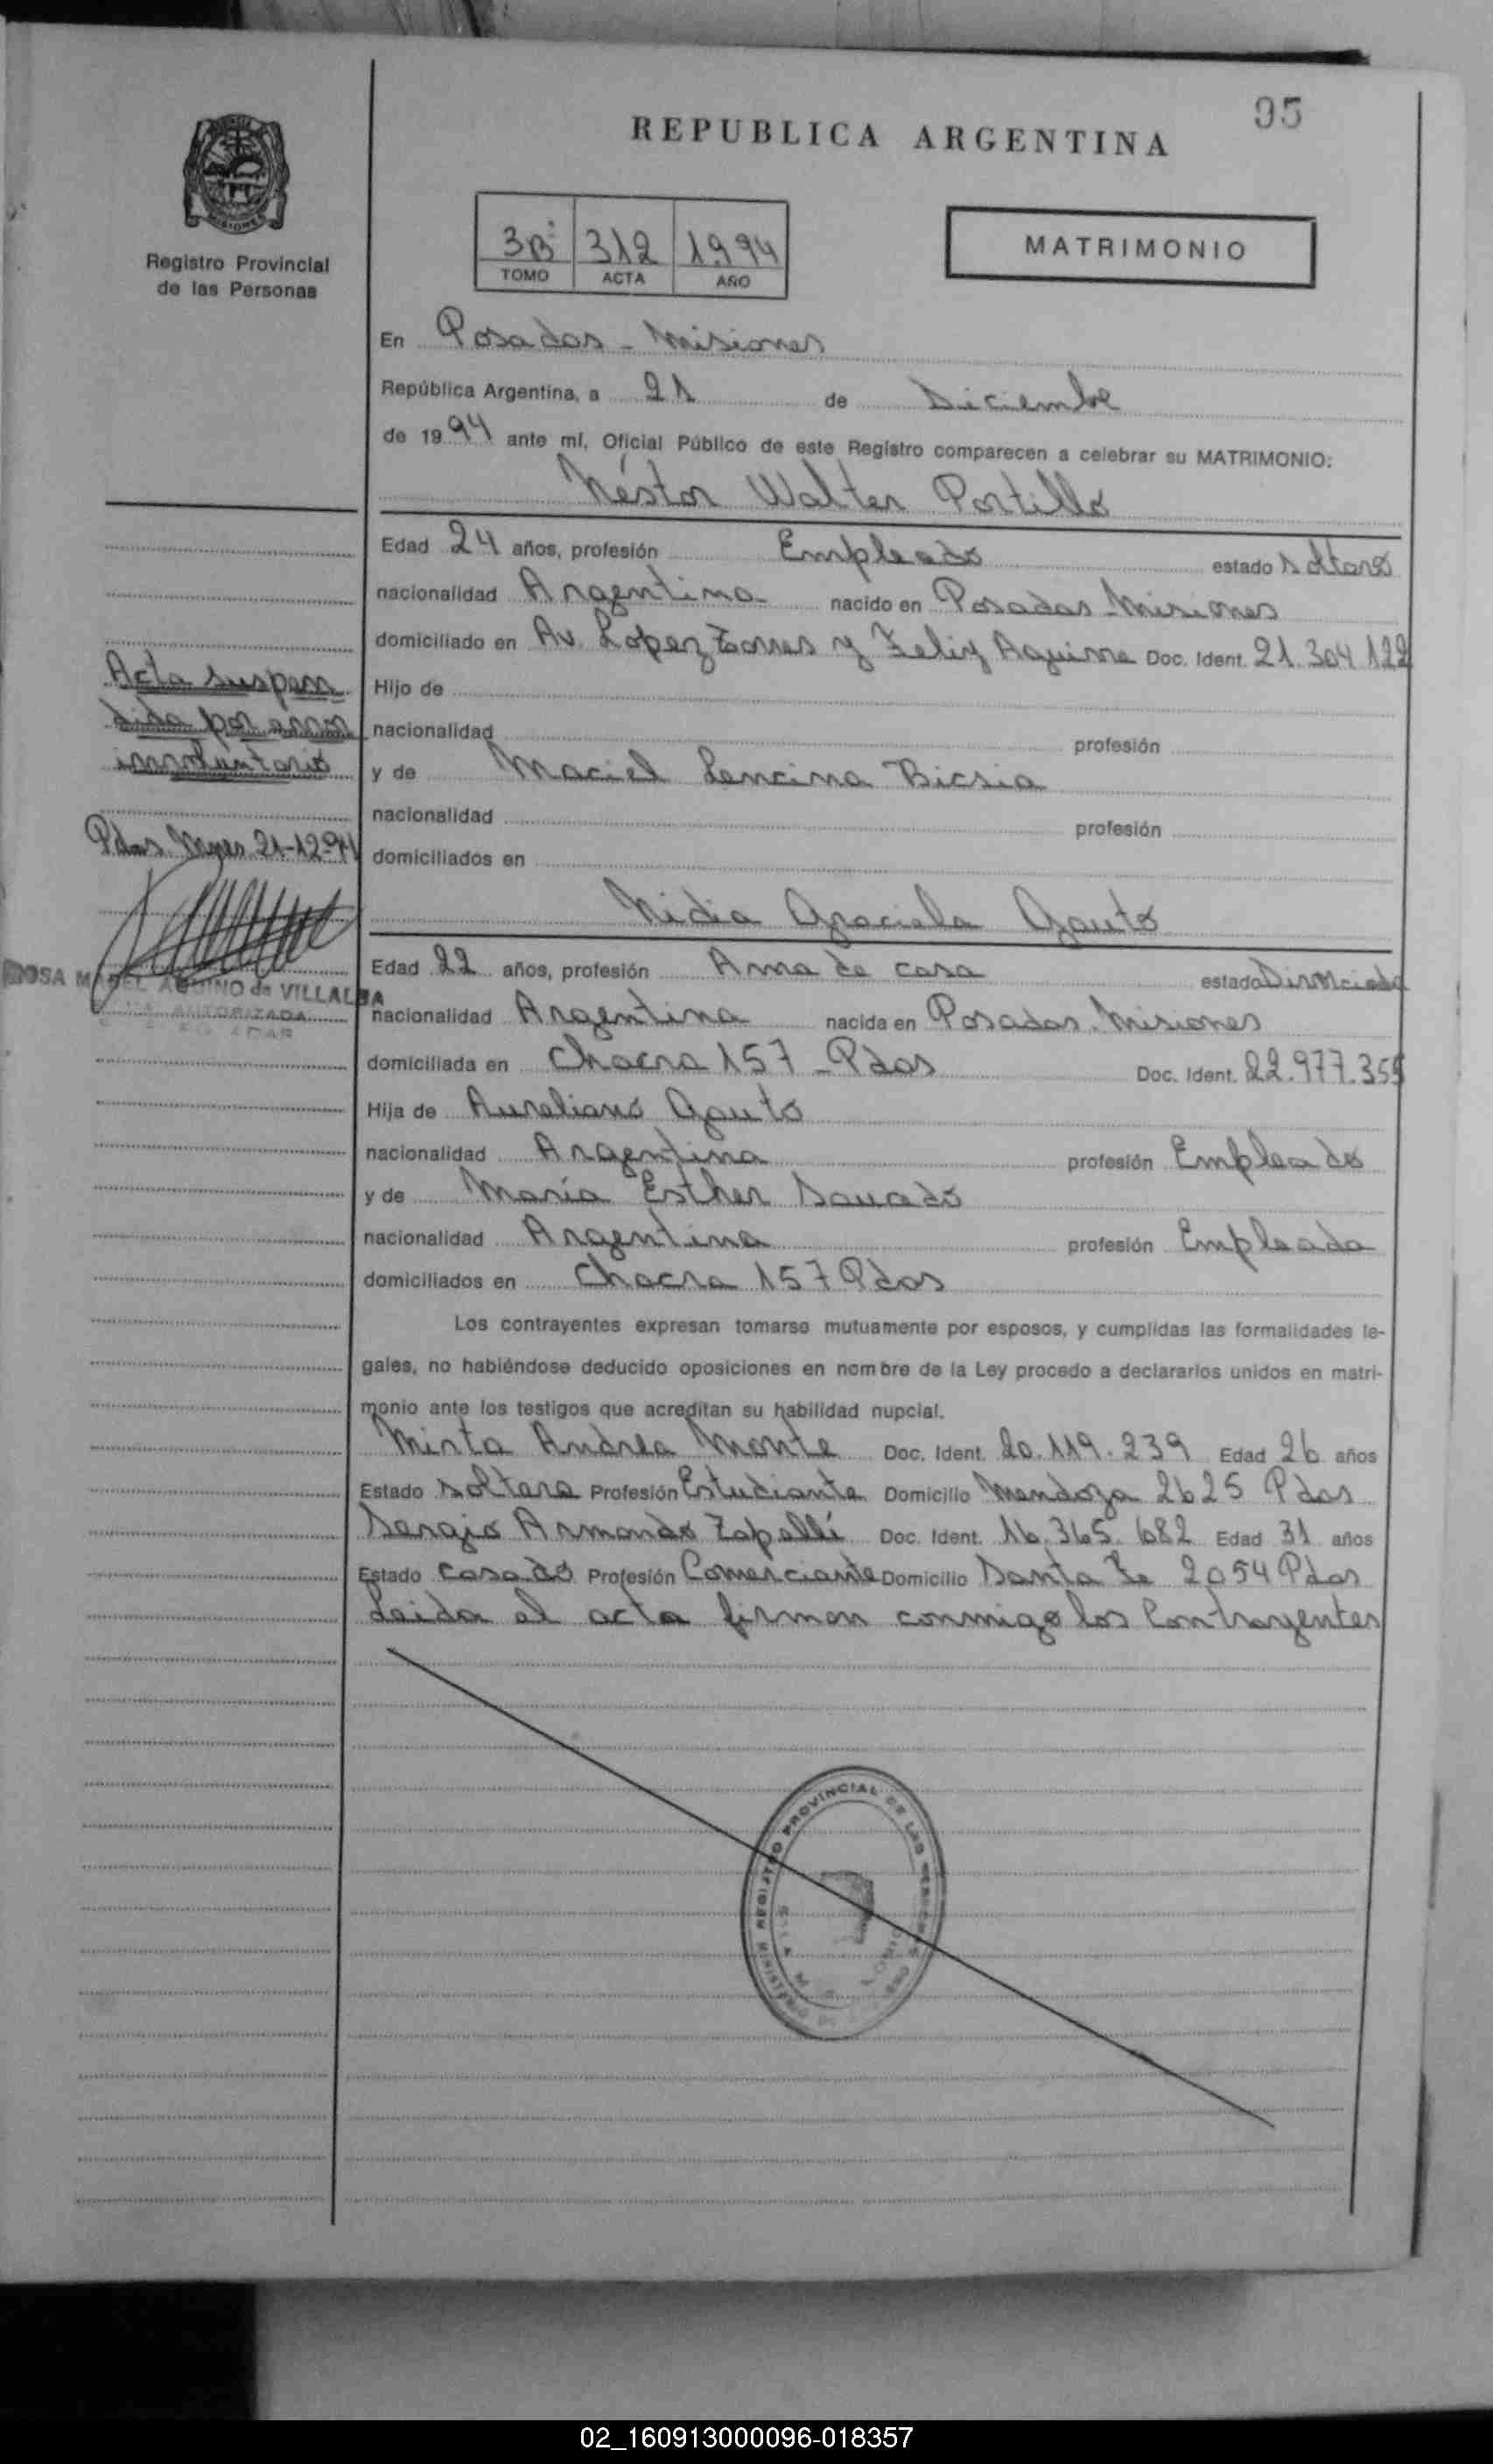 95
REPUBLICA ARGENTINA
Registro Provincial
de las Personas
3Bº 312 1994
TOMO ACTA AÑO
MATRIMONIO
En Posadas - Misiones
República Argentina, a 21 de Diciembre
de 1994 ante mí, Oficial Público de este Registro comparecen a celebrar su MATRIMONIO:
Néstor Walter Portillo
Edad 24 años, profesión Empleado estado soltero
nacionalidad Argentina nacido en Posadas Misiones
domiciliado en Av. Lopez Torres y Felix Aguirre Doc. Ident. 21.304.122
Hijo de
nacionalidad profesión
y de Maciel Lencina Bicsia
nacionalidad profesión
domiciliados en
Acta suspen
dida por error
involuntario
Pdas Mnes 21-12-94
ROSA MABEL AQUINO de VILLALBA
AUTORIZADA
Nidia Graciela Gauto
Edad 22 años, profesión Ama de casa estado Divorciada
nacionalidad Argentina nacida en Posadas Misiones
domiciliada en Chacra 157 - Pdas Doc. Ident. 22.977.355
Hija de Aureliano Gauto
nacionalidad Argentina profesión Empleado
y de María Esther Saucedo
nacionalidad Argentina profesión Empleada
domiciliados en Chacra 157 Pdas
Los contrayentes expresan tomarse mutuamente por esposos, y cumplidas las formalidades le-
gales, no habiéndose deducido oposiciones en nombre de la Ley procedo a declararlos unidos en matri-
monio ante los testigos que acreditan su habilidad nupcial.
Mirta Andrea Monte Doc. Ident. 20.119.239 Edad 26 años
Estado soltera Profesión Estudiante Domicilio Mendoza 2625 Pdas
Sergio Armando Zapelli Doc. Ident. 16.365.682 Edad 31 años
Estado casado Profesión Comerciante Domicilio Santa Fe 2054 Pdas
Leida el acta firman conmigo los Contrayentes
REGISTRO PROVINCIAL DE LAS
MINISTERIO
02_160913000096-018357